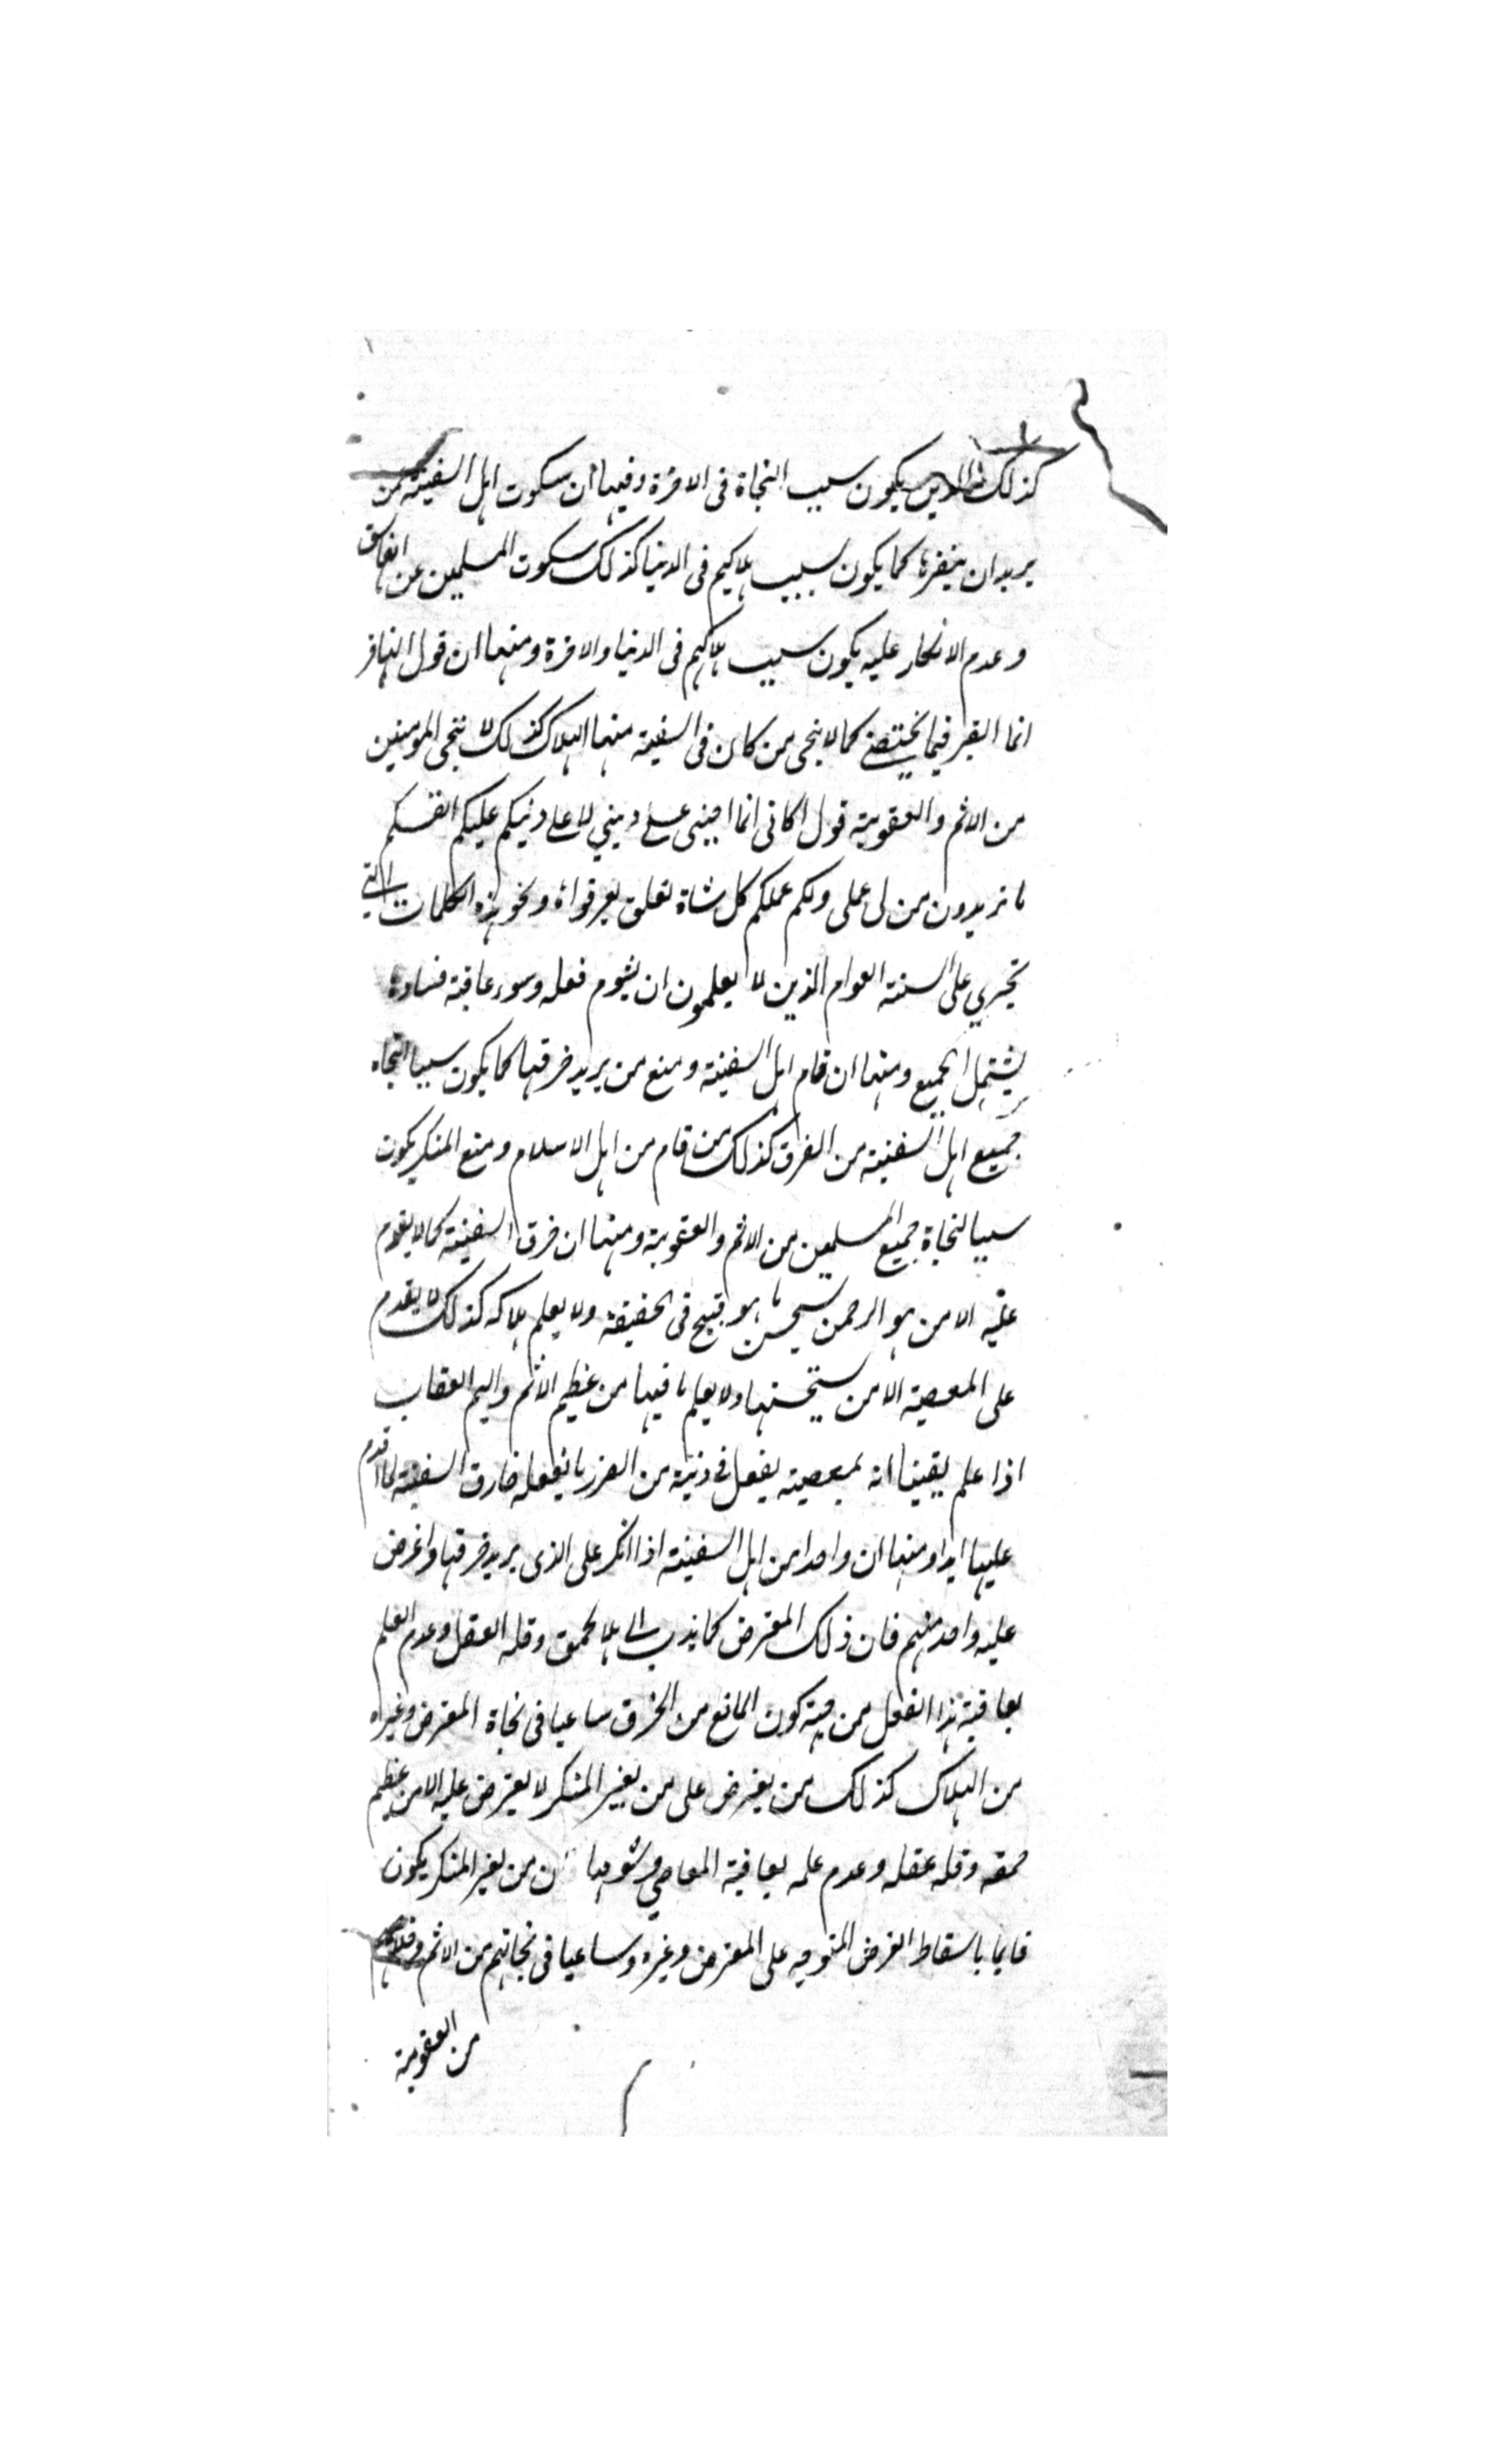 كذلك الدين يكون سبب النجاة فى الاخرة وفيها ان سكوت اهل السفينة عمن
يريد ان ينقرها كما يكون سبب هلاكهم فى الدنيا كذلك سكوت المسلمين عن الفاسق
وعدم الانكار عليه يكون سبب هلاكهم فى الدنيا والاخرة ومنها ان قول الناقر
انما انقر فيما يختصنى كما لا ينجى من كان فى السفينة منها الهلاك كذلك لا ينجى المومنين
من الاثم والعقوبة قول انما اجنى على دينى لا على دينكم عليكم انفسكم
ما تريدون من لى عملى ولكم عملكم كل شاة تعلق بعرقوبه ونحو هذه الكلمات التى
تجرى على السنة العوام الذين لا يعلمون ان شوم فعله وسوء عاقبة فساده
يشتمل الجميع ومنها ان قام اهل السفينة ومنع من يريد خرقها كما يكون سببا لنجاة
جميع اهل السفينة من الغرق كذلك من قام من اهل الاسلام ومنع المنكر يكون
سببا لنجاة جميع المسلمين من الاثم والعقوبة ومنها ان خرق السفينة كما لا يقدم
عليه الا من هو يستحسن ما هو قبيح فى الحقيقة ولا يعلم هلاكه كذلك لا يقدم
على المعصية الا من يستحسنها ولا يعلم ما فيها من عظيم الاثم واليم العقاب
اذا علم يقينا انه بمعصيته يفعل فى دينه من الضرر ما يفعله خارق السفينة لما اقدم
عليها ابدا ومنها ان واحدا من اهل السفينة اذا انكر على الذى يريد خرقها واعرض
عليه واحد منهم فان ذلك المعترض كما ينسب الى الحمق وقلة العقل وعدم العلم
بعاقبة هذا الفعل من جهة كون المانع من الخرق ساعيا فى نجاة المعترض وغيره
من الهلاك كذلك من يعترض على من يغير المنكر لا يعترض عليه الا من عظم
حمقه وقلة عقله وعدم علمه بعاقبة المعاصى وشومها فان من يغير المنكر يكون
قايما باسقاط الفرض المتوجه على المعترض وغيره وساعيا فى نجاتهم من الاثم وخلاصهم
من العقوبة